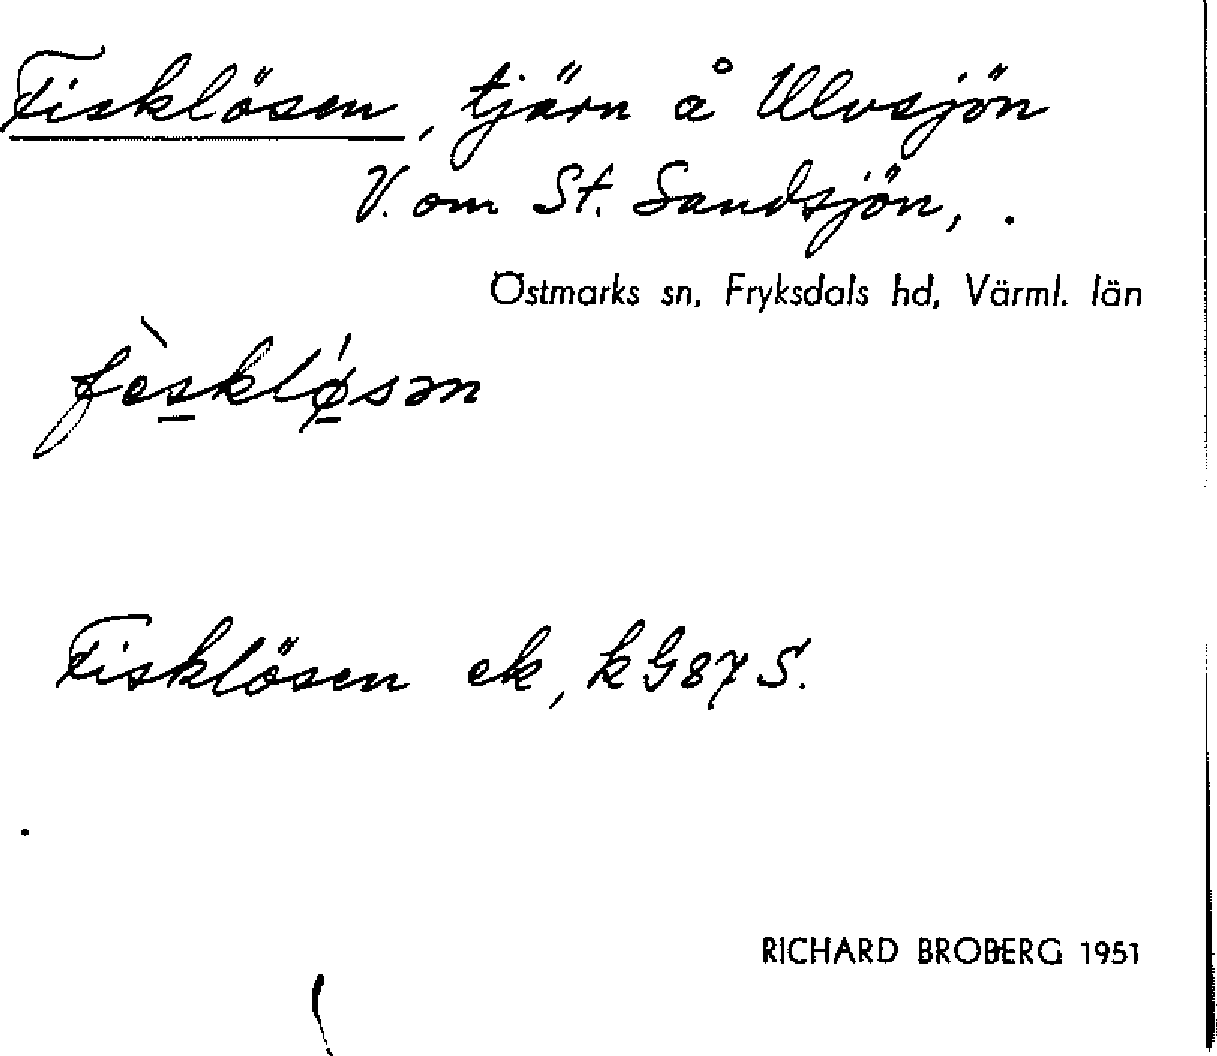 Fisklösen, tjärn å Ulvsjön
V. om St. Sandsjön, .
Östmarks sn, Fryksdals hd, Värml. län
fèsklǿsən
Fisklösen ek, k G87 S.
RICHARD BROBERG 1951